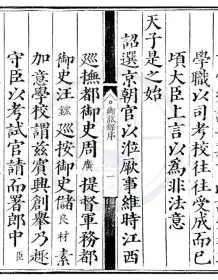 學職以司考校往往受成而已
項大臣上言以為非法意
天子是之始
詔選京朝官以涖厥事維時江西
鄉試錄序
一
廵撫都御史周廣提督軍務都
御史汪鋐廵按御史儲良材素
加意學校謂茲賓興創舉乃趣
守臣以考試官請而署郎中臣